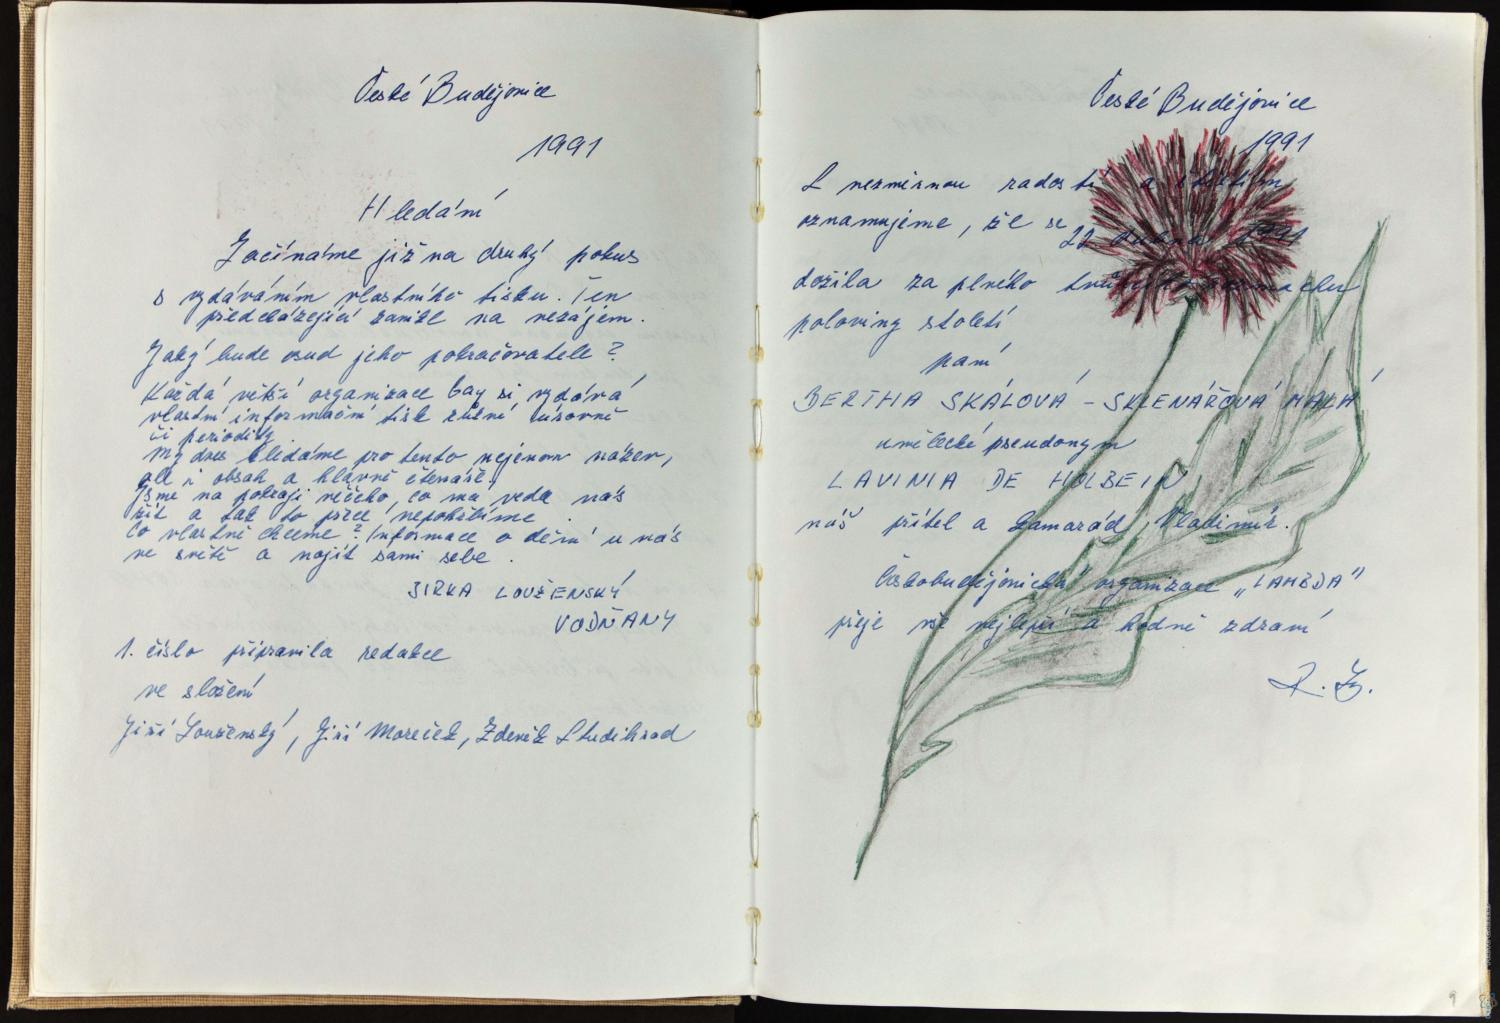 České Budějovice
1991
Hledání
Začínáme již na druhý pokus
s vydáváním vlastního tisku. Ten
předcházející zanikl na nezájem.
Jaký bude osud jeho pokračovatele?
Každá větší organizace Gay si vydává
vlastní informační tisk různé úrovně
či periodity
My dnes hledáme pro tento nejenom název,
ale i obsah a hlavně čtenáře,
Jsme na pokraji něčeho, co má vedu nás
žít a tak to přece nepohřbíme.
Co vlastně chceme? Informace o dění u nás
ve světě a najít sami sebe.
JIRKA LOUŽENSKÝ
VODŇANY
1. číslo připravila redakce
ve složení
Jiří Louženský, Jiří Mareček, Zdeněk Studihrad
České Budějovice
1991
S nezmírnou radostí a štěstím
oznamujeme, že se
22 dubna 1991
dožila za plného
poloviny století
paní
BERTHA SKÁLOVÁ - SKLENÁŘOVÁ MALÁ
umělecké pseudonym
LAVINIA DE HOLBEIN
náš přítel a kamarád, Vladimír.
Českobudějonická organizace „LAMBDA"
přeje vše nejlepší a hodně zdraví
9